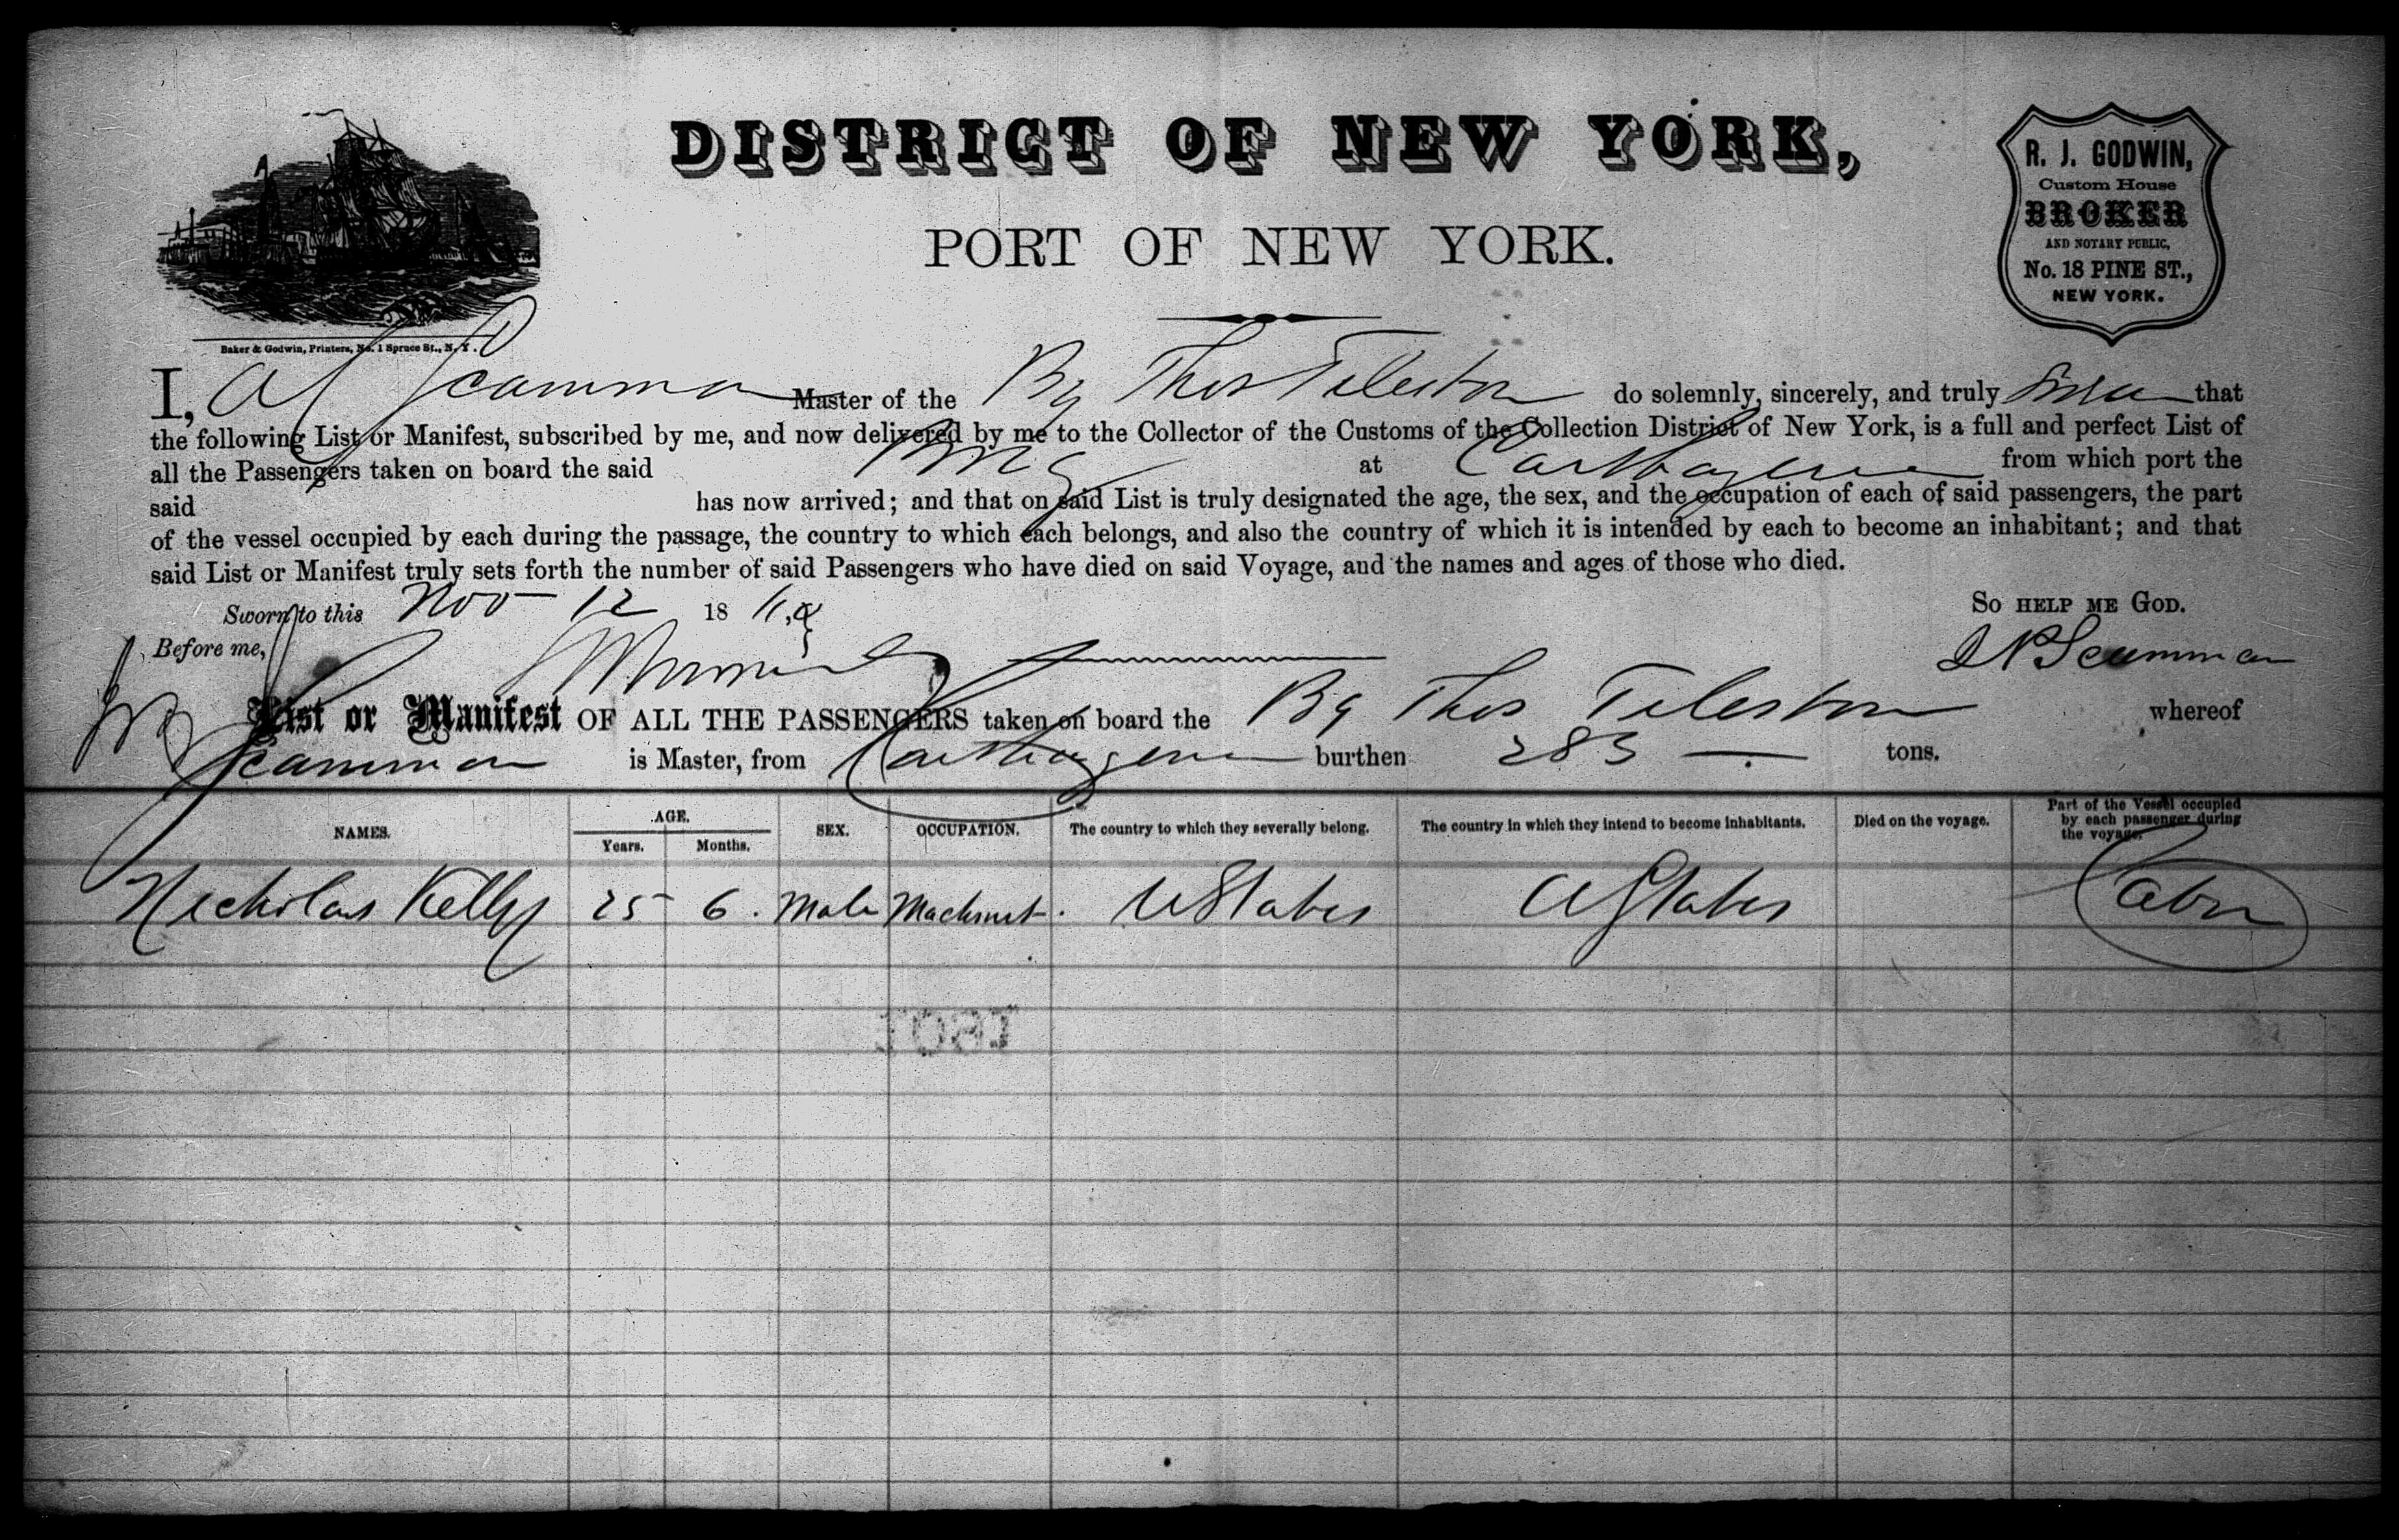 DISTRICT OF NEW YORK,
PORT OF NEW YORK.
R. J. GODWIN,
Custom House
BROKER
AND NOTARY PUBLIC,
No. 18 PINE ST.,
NEW YORK.
Baker & Godwin, Printers, No. 1 Spruce St., N. Y.
I, Scamman Master of the Bg Thos Tileston do solemnly, sincerely, and truly swear that
the following List or Manifest, subscribed by me, and now delivered by me to the Collector of the Customs of the Collection District of New York, is a full and perfect List of
all the Passengers taken on board the said Brig at Carthagena from which port the
said has now arrived; and that on said List is truly designated the age, the sex, and the occupation of each of said passengers, the part
of the vessel occupied by each during the passage, the country to which each belongs, and also the country of which it is intended by each to become an inhabitant; and that
said List or Manifest truly sets forth the number of said Passengers who have died on said Voyage, and the names and ages of those who died.
Sworn to this Nov 12 18 So HELP ME GOD.
Before me, Scamman
List or Manifest OF ALL THE PASSENGERS taken on board the Bg Thos Tileston whereof
Scamman is Master, from Carthagena burthen 283 tons.
NAMES. AGE. Years. Months. SEX. OCCUPATION. The country to which they severally belong. The country in which they intend to become inhabitants. Died on the voyage. Part of the Vessel occupied by each passenger during the voyage.
Nicholas Kelly 25 6. Male Machinist. U States U States Cabin
1051